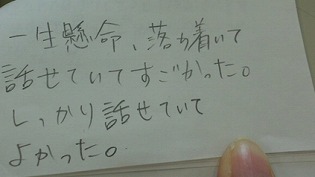 一生懸命、落ち着いて
話せていてすごかった。
しっかり話せていて
よかった。